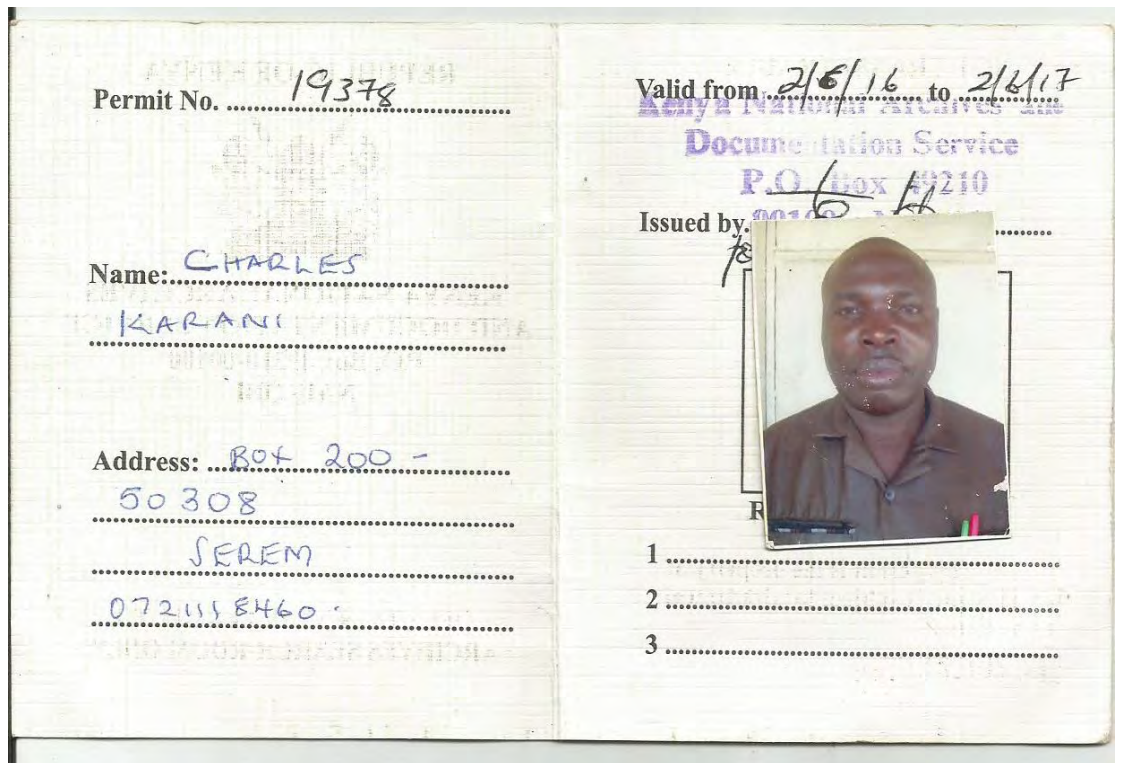 Permit No. 19378
Name: CHARLES
KARANI
Address: BOX 200 -
50308
SEREM
0721118460.
Valid from 2/6/16 to 2/6/17
Kenya National Archives and
Documentation Service
P.O. Box 49210
Issued by.
1
2
3